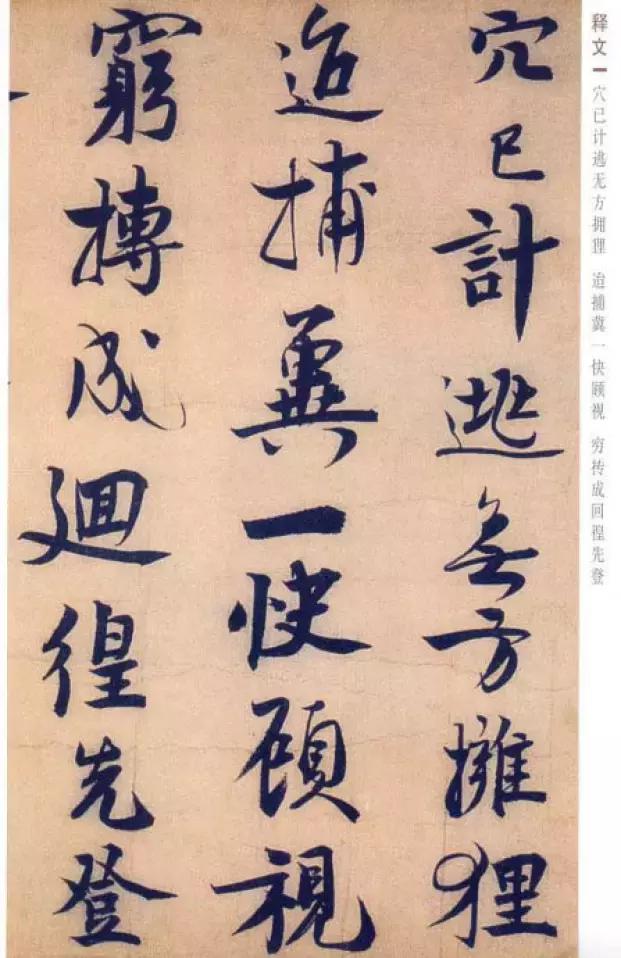 释文一 穴已计逃无方拥狸 迨捕冀一快顾视 穷抟成回徨先登
穴已計逃無方擁狸
迨捕冀一快顧視
窮摶成廻徨先登